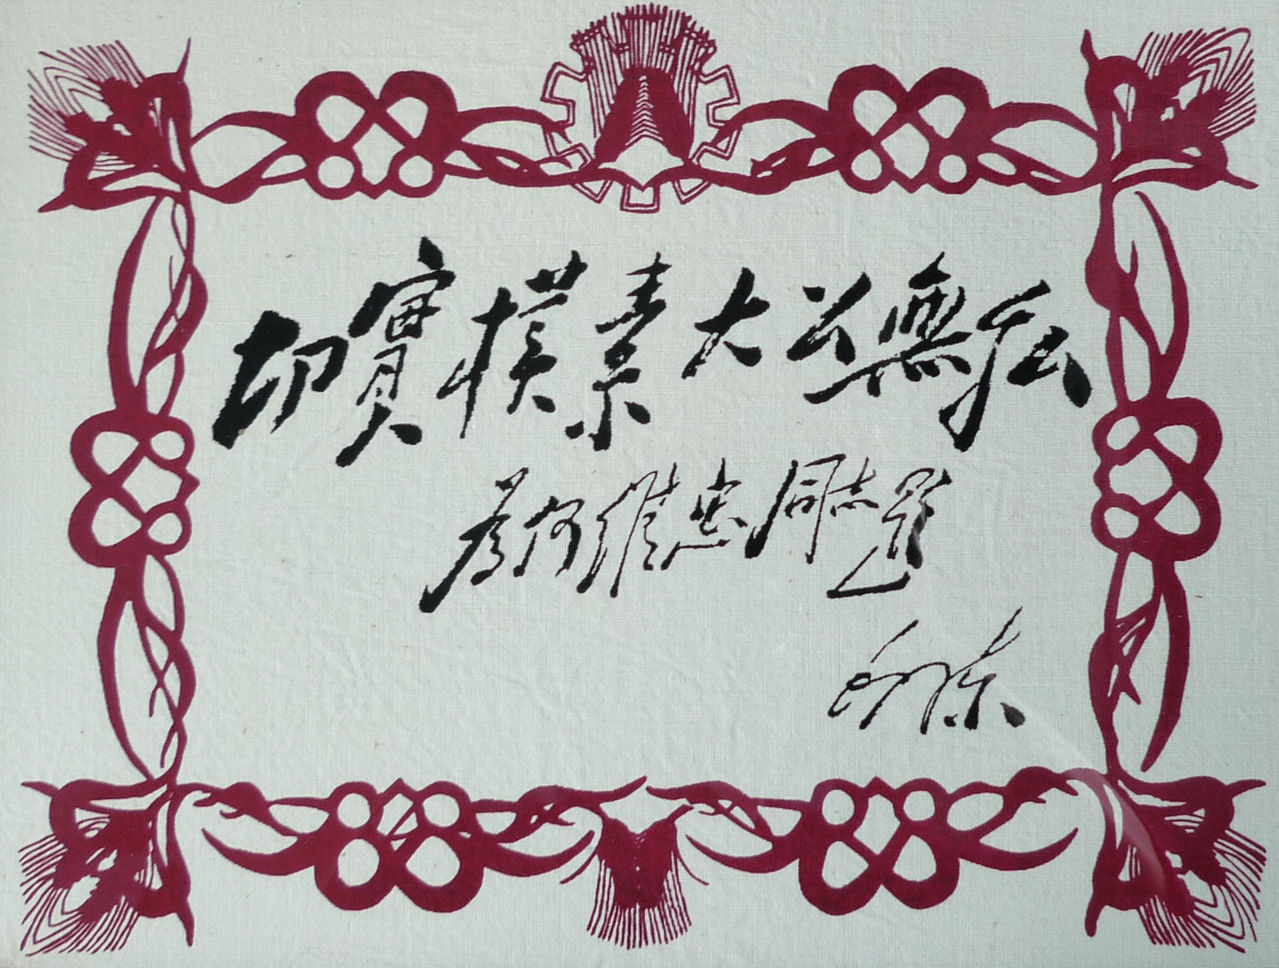 切實樸素大公無私
為何維忠同志題